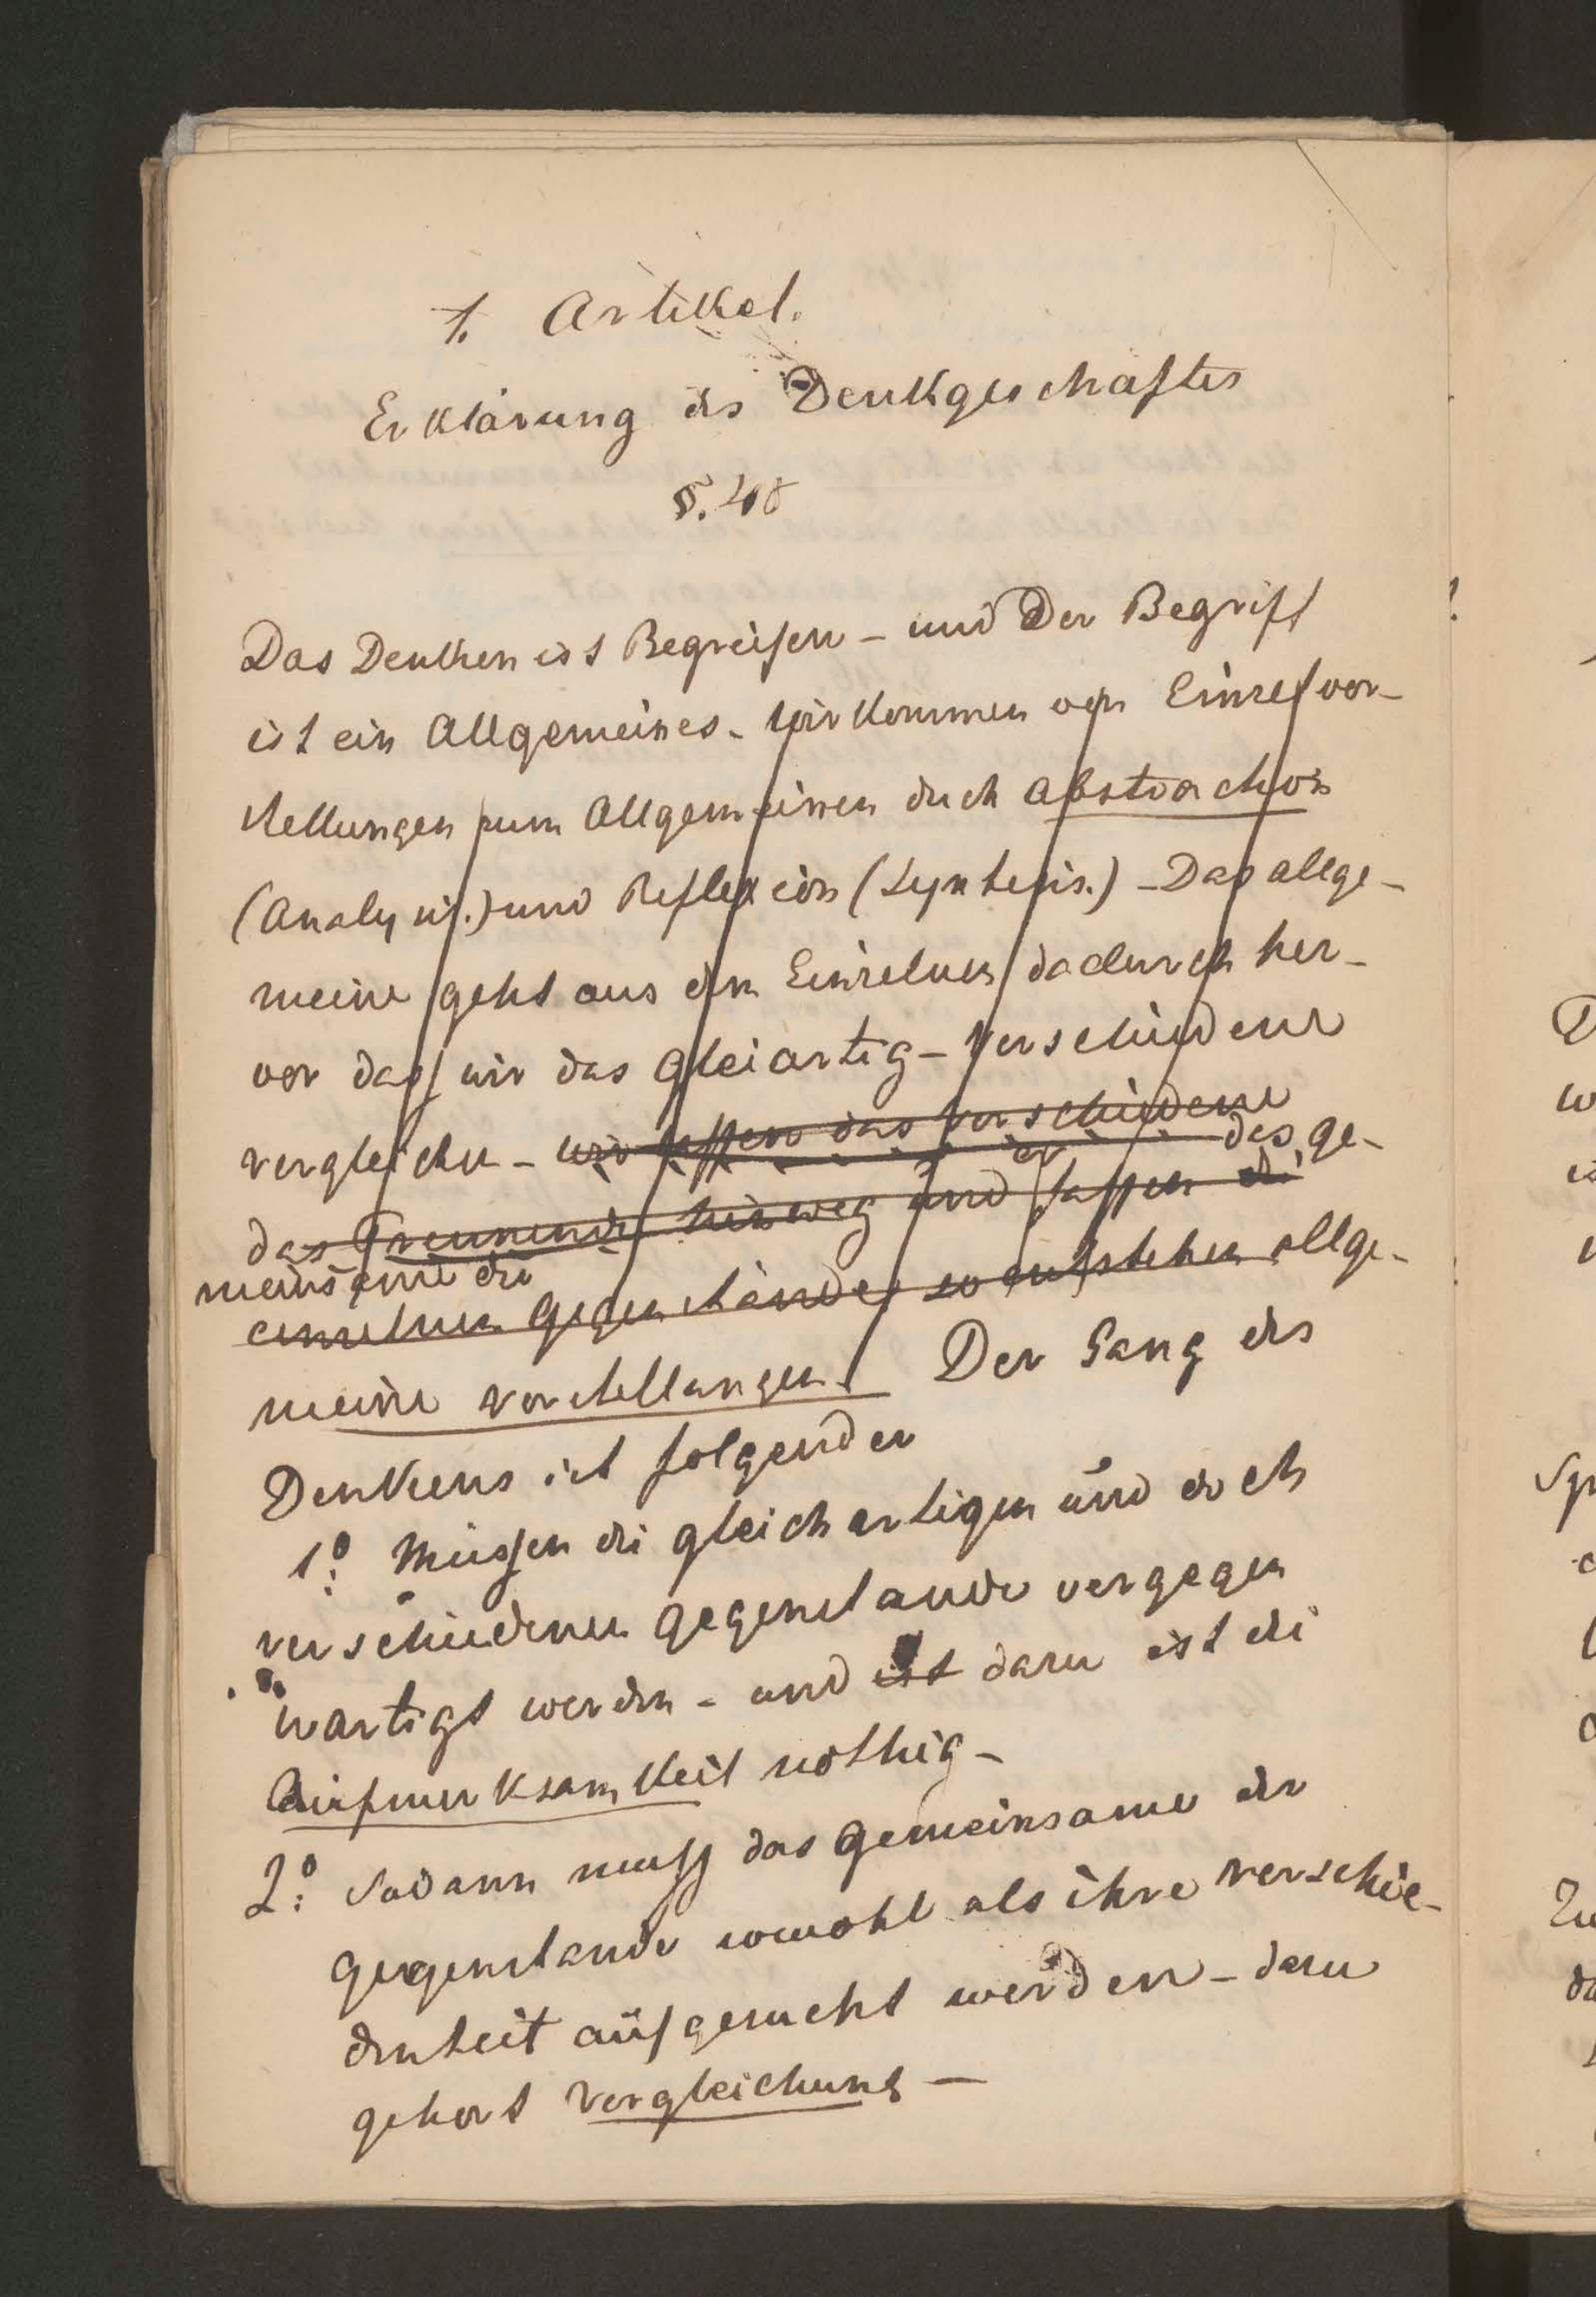 1. Artikel.
Erklärung des Denkgeschäftes
§. 48
Das Denken ist Begreifen – und Der Begriff
ist ein Allgemeines – wir kommen von Einzelvor-
stellungen zum Allgemeinen duch abstraction
(Analysis.) und Reflexion (Synthesis.) – Das allge-
meine geht aus dem Einzelnen dadurch her-
vor dass wir das gleiartig – verschiedene
vergleichen – wir lassen das verschiedene
das Trennende hinweg und fassen di des ge-
meinsame der
einzelnen Gegenstände so entstehen allge-
meine vorstellungen. Der Gang des
Denkens ist folgender
1º: Müssen di gleichartigen und doch
verschiedenen gegenstande vergegen
wartigt werden – und ist dazu ist di
Aufmerksamkeit nothig –
2º: Sodann muss das gemeinsame der
gegenstande sowohl als ihre verschie-
denheit aufgesucht werden – dazu
gehort Vergleichung –